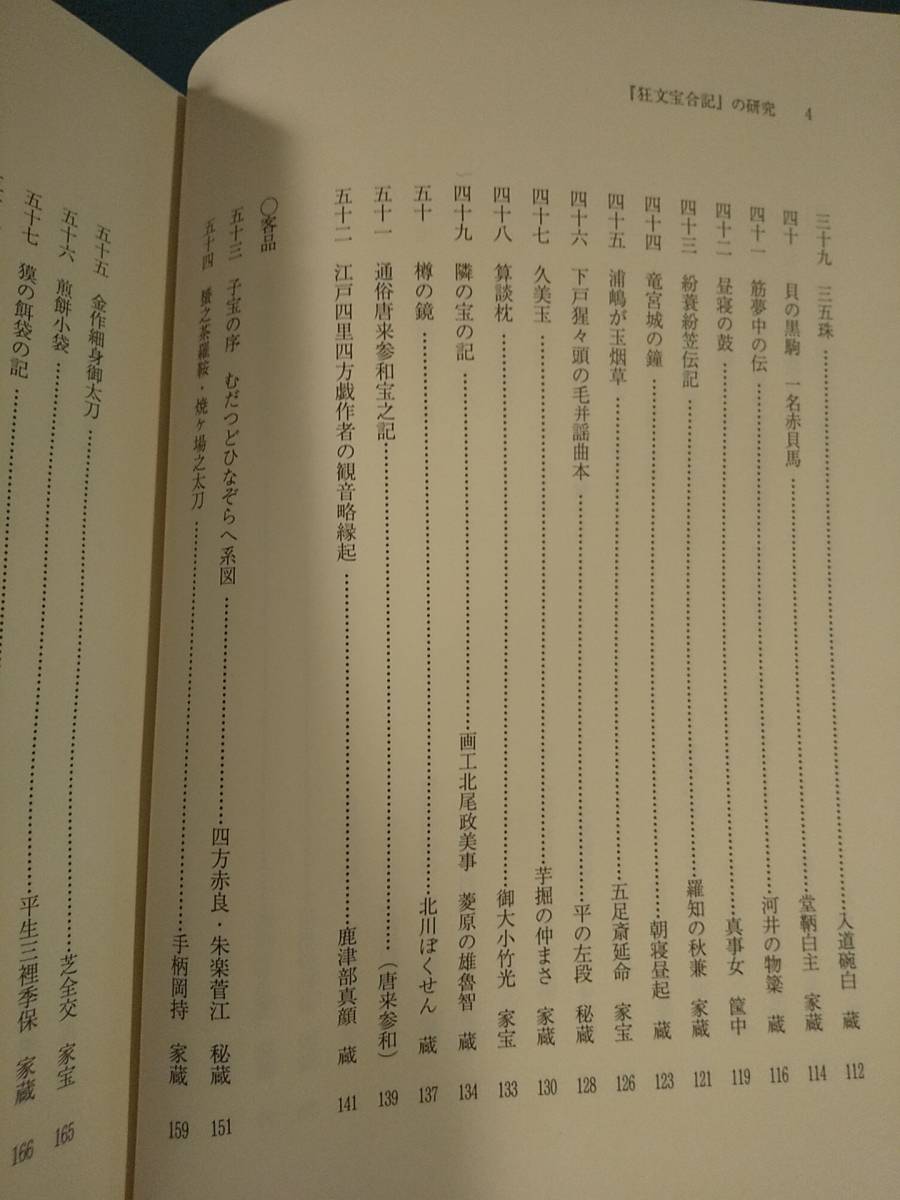 『狂文宝合記』の研究 4
三十九 三五珠 入道碗白 蔵 112
四十 貝の黒駒 一名赤貝馬 堂鞆白主 家蔵 114
四十一 筋夢中の伝 河井の物簗 蔵 116
四十二 昼寝の鼓 真事女 筐中 119
四十三 紛蓑紛笠伝記 羅知の秋兼 家蔵 121
四十四 竜宮城の鐘 朝寝昼起 蔵 123
四十五 浦嶋が玉烟草 五足斎延命 家宝 126
四十六 下戸猩々頭の毛并謡曲本 平の左段 秘蔵 128
四十七 久美玉 芋掘の仲まさ 家蔵 130
四十八 算談枕 御大小竹光 家宝 133
四十九 隣の宝の記 画工北尾政美事 菱原の雄魯智 蔵 134
五十 樽の鏡 北川ぼくせん 蔵 137
五十一 通俗唐来参和宝之記 (唐来参和) 139
五十二 江戸四里四方戯作者の観音略縁起 鹿津部真顔 蔵 141
○客品
五十三 子宝の序 むだつどひなぞらへ系図 四方赤良・朱楽菅江 秘蔵 151
五十四 蜑之茶羅鞍・焼ヶ場之太刀 手柄岡持 家蔵 159
五十五 金作細身御太刀 芝全交 家宝 165
五十六 煎餅小袋 平生三裡季保 家蔵 166
五十七 獏の餌袋の記